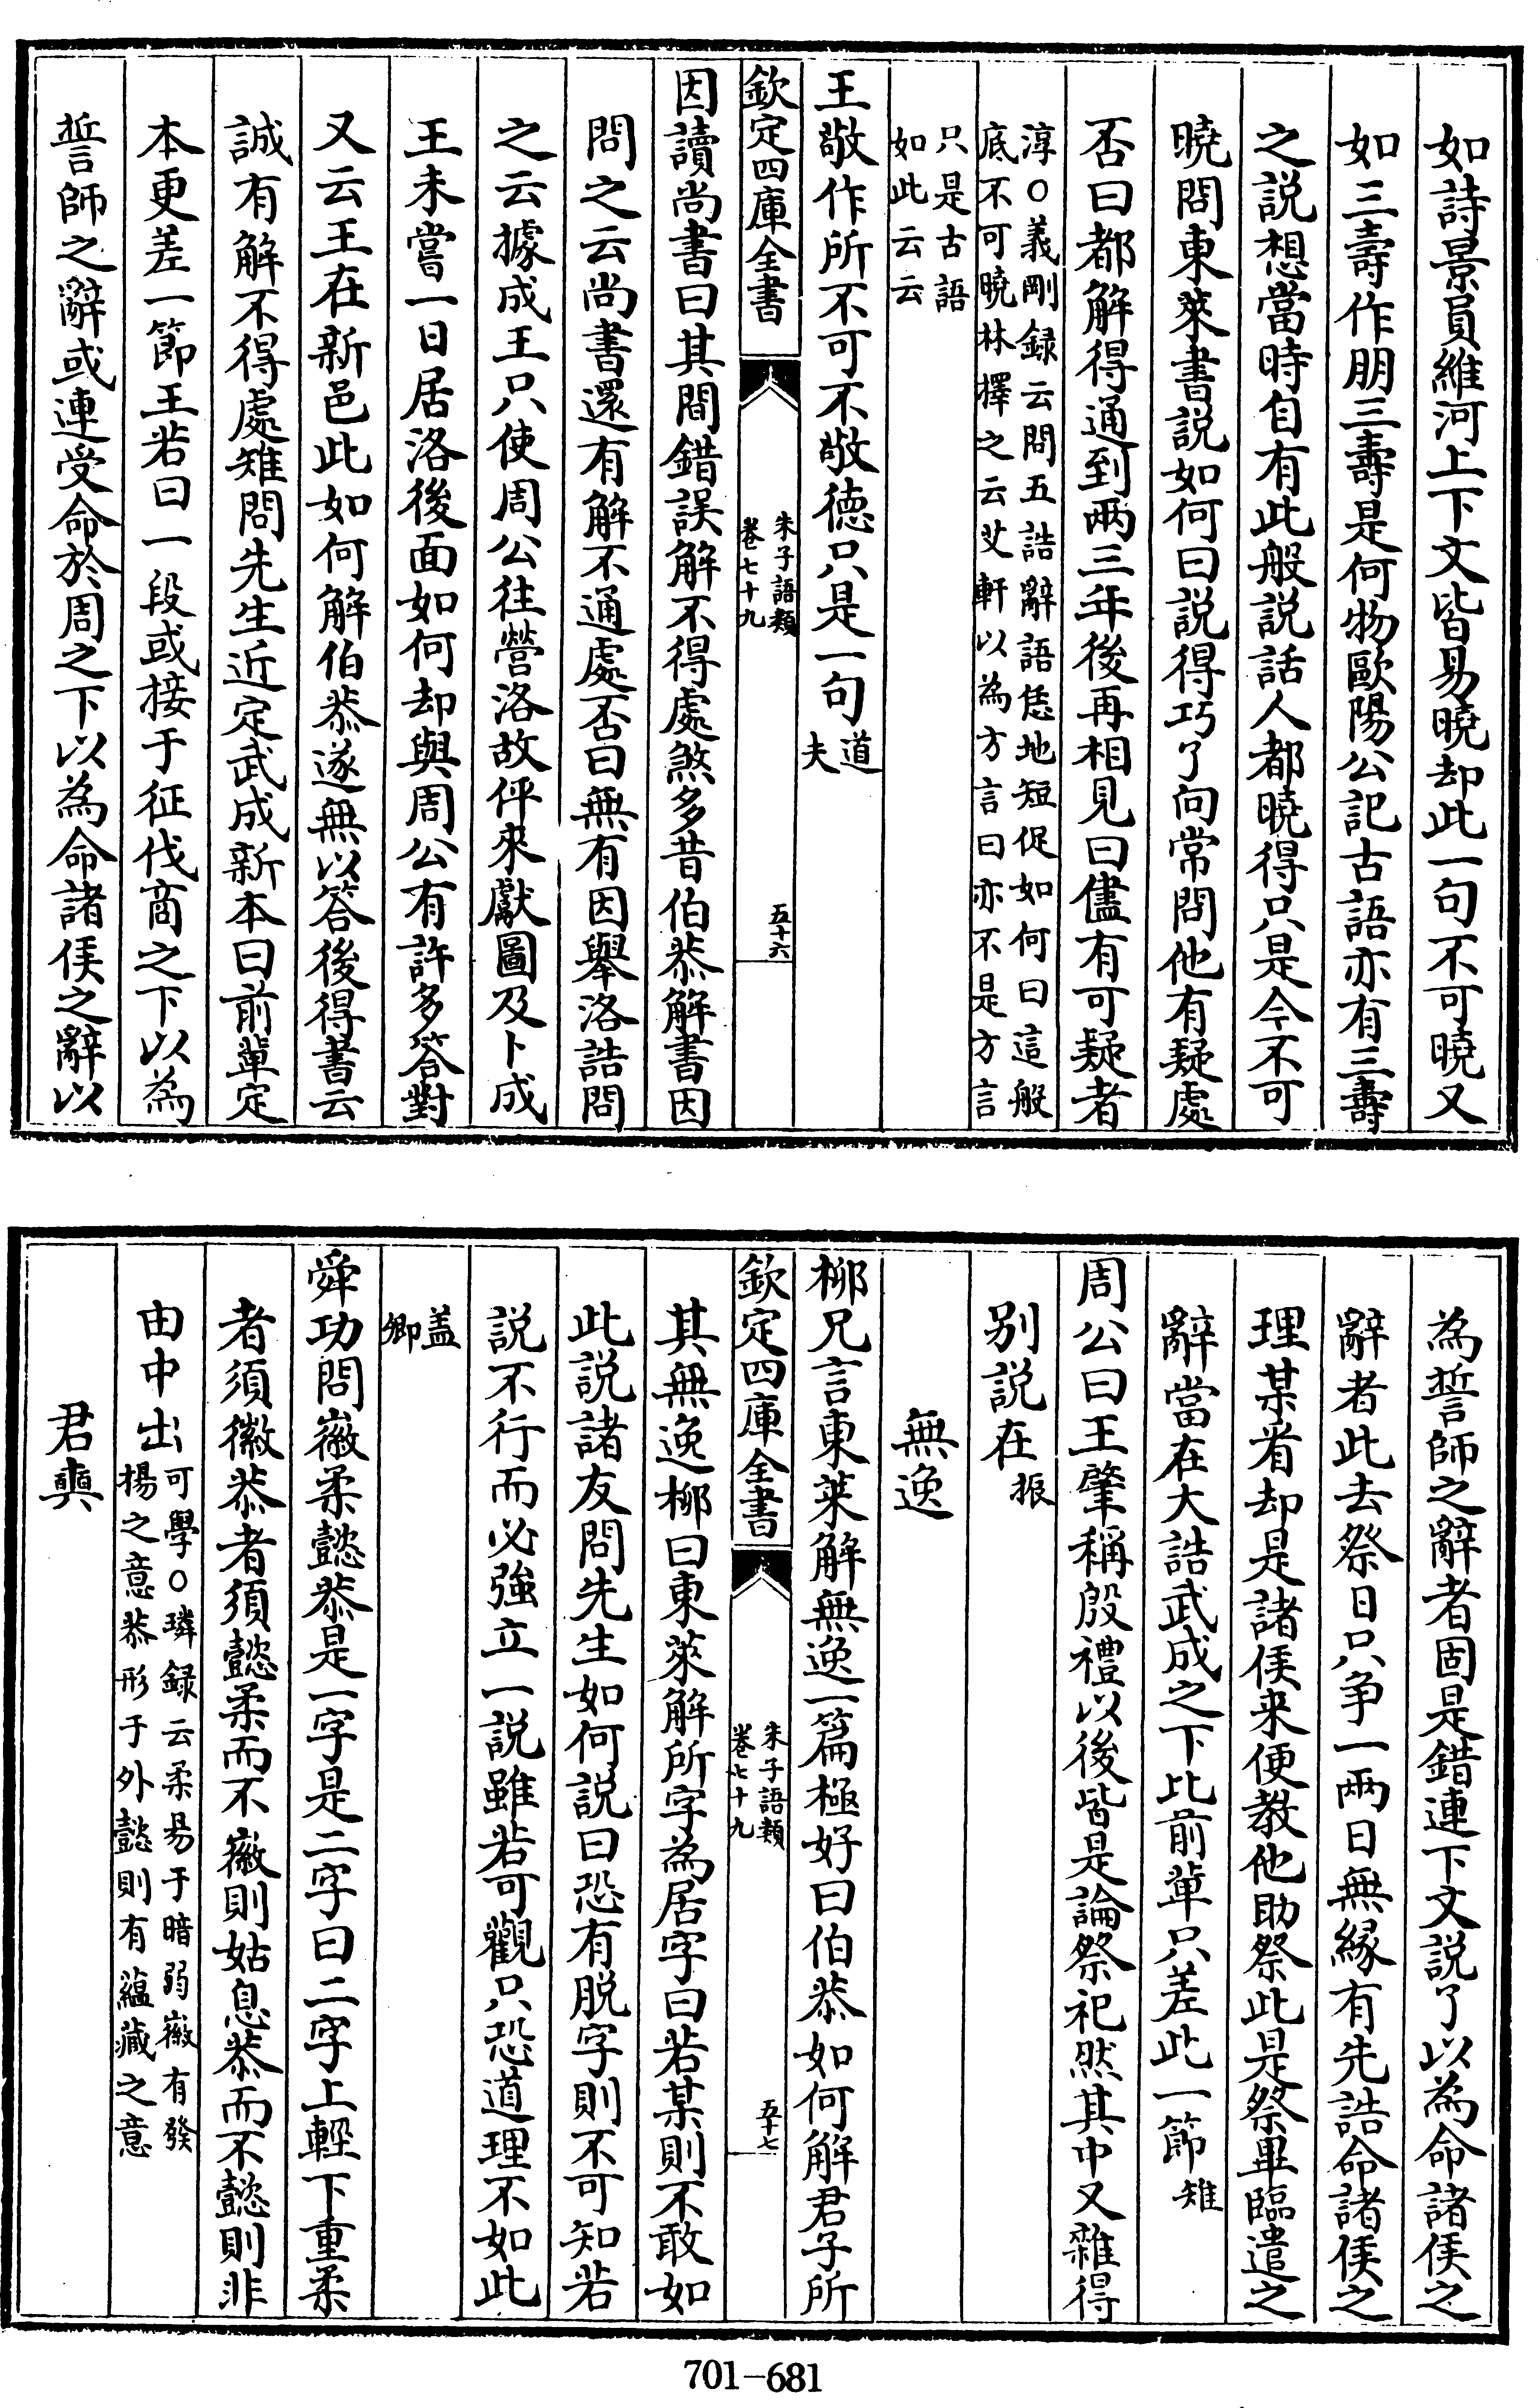 如詩景員維河上下文皆易曉却此一句不可曉又
如三壽作朋三壽是何物歐陽公記古語亦有三壽
之説想當時自有此般説話人都曉得只是今不可
曉問東萊書説如何曰説得巧了向常問他有疑處
否曰都解得通到兩三年後再相見曰儘有可疑者
淳○義剛録云問五誥辭語恁地短促如何曰這般
底不可曉林擇之云艾軒以為方言曰亦不是方言
只是古語
如此云云
王敬作所不可不敬徳只是一句道
夫
欽定四庫全書
朱子語類
卷七十九
五十六
因讀尚書曰其間錯誤解不得處煞多昔伯恭解書因
問之云尚書還有解不通處否曰無有因舉洛誥問
之云據成王只使周公往營洛故伻來獻圖及卜成
王未嘗一日居洛後面如何却與周公有許多答對
又云王在新邑此如何解伯恭遂無以答後得書云
誠有解不得處雉問先生近定武成新本曰前軰定
本更差一節王若曰一段或接于征伐商之下以為
誓師之辭或連受命於周之下以為命諸侯之辭以
為誓師之辭者固是錯連下文説了以為命諸侯之
辭者此去祭日只爭一兩日無緣有先誥命諸侯之
理某看却是諸侯来便教他助祭此是祭畢臨遣之
辭當在大誥武成之下比前軰只差此一節雉
周公曰王肇稱殷禮以後皆是論祭祀然其中又雜得
别説在振
無逸
柳兄言東萊解無逸一篇極好曰伯恭如何解君子所
欽定四庫全書
朱子語類
卷七十九
五十七
其無逸柳曰東萊解所字為居字曰若某則不敢如
此説諸友問先生如何説曰恐有脱字則不可知若
説不行而必強立一説雖若可觀只恐道理不如此
盖
卿
舜功問徽柔懿恭是一字是二字曰二字上輕下重柔
者須徽恭者須懿柔而不徽則姑息恭而不懿則非
由中出可學○璘録云柔易于暗弱徽有發
揚之意恭形于外懿則有藴藏之意
君奭
701-681